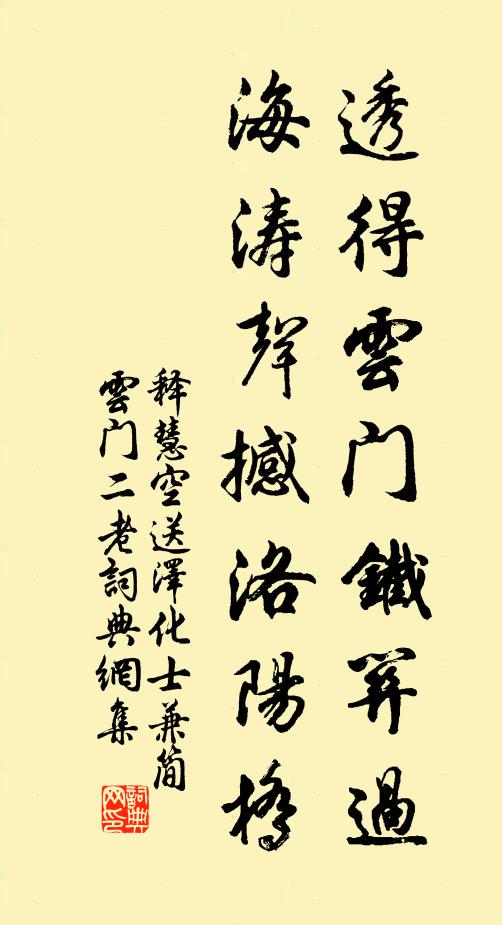 透得雲门鐵关過
海涛聲撼洛陽橋
释慧空送澤化士兼简
雲门二老詞典網集
詞典网印